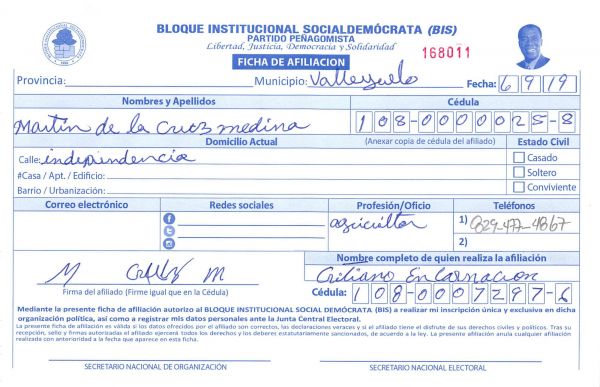 BLOQUE INSTITUCIONAL SOCIALDEMÓCRATA (BIS)
PARTIDO PEÑAGOMISTA
Libertad, Justicia, Democracia y Solidaridad
168011
FICHA DE AFILIACION
Provincia: Municipio: Vallejuelo Fecha: 6 9 19
Nombres y Apellidos Cédula
Martin de la Cruz medina 108-0000025-8
Domicilio Actual (Anexar copia de cédula del afiliado) Estado Civil
Calle: independencia Casado
#Casa / Apt. / Edificio: Soltero
Barrio / Urbanización: Conviviente
Correo electrónico Redes sociales Profesión/Oficio Teléfonos
agricultor 1) 829-477-4867
2)
Nombre completo de quien realiza la afiliación
M Cruz M Encarnacion
Firma del afiliado (Firme igual que en la Cédula) Cédula: 108-0007297-6
Mediante la presente ficha de afiliación autorizo al BLOQUE INSTITUCIONAL SOCIAL DEMÓCRATA (BIS) a realizar mi inscripción única y exclusiva en dicha
organización política, así como a registrar mis datos personales ante la Junta Central Electoral.
La presente ficha de afiliación es válida si los datos ofrecidos por el afiliado son correctos, las declaraciones veraces y si el afiliado tiene el disfrute de sus derechos civiles y políticos. Tras su
recepción, sello y firmas autorizadas el afiliado ejercerá todos los derechos y los deberes estatutariamente sancionados, de acuerdo a la ley. La presente afiliación anula cualquier afiliación
realizada con anterioridad a la fecha que aparece en esta ficha.
SECRETARIO NACIONAL DE ORGANIZACIÓN SECRETARIO NACIONAL ELECTORAL